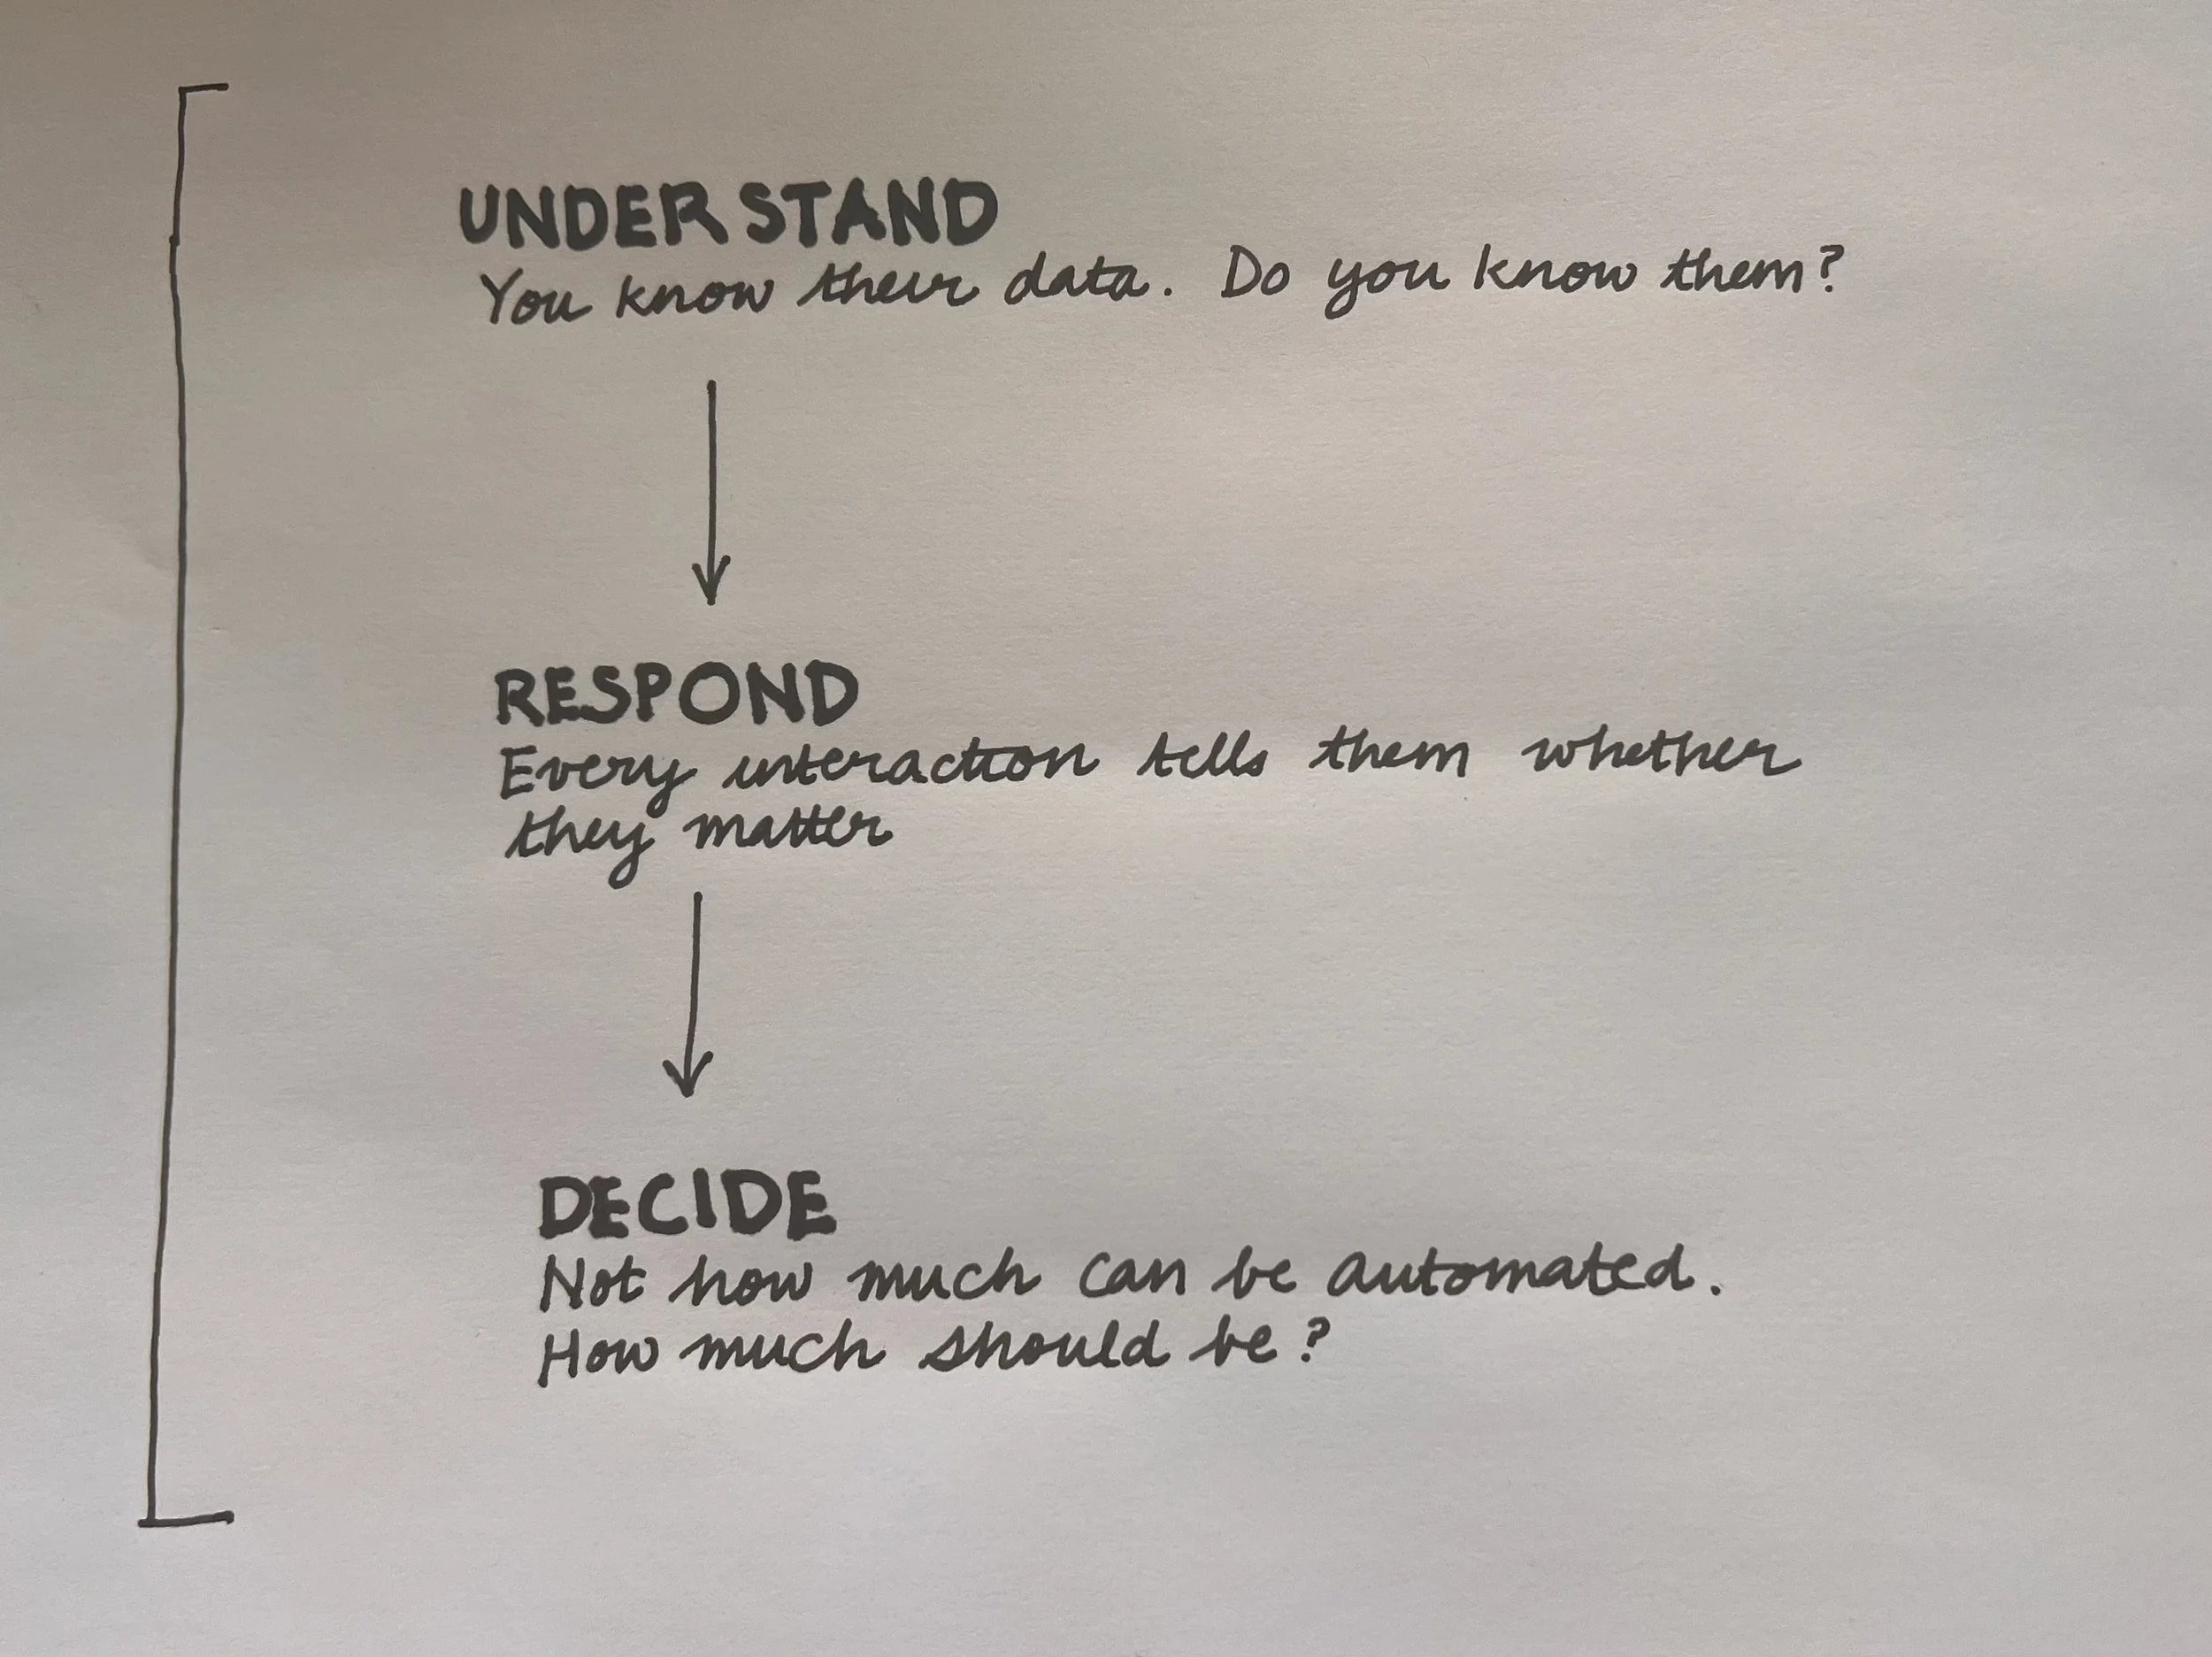 UNDERSTAND
You know their data. Do you know them?
RESPOND
Every interaction tells them whether
they matter
DECIDE
Not how much can be automated.
How much should be?